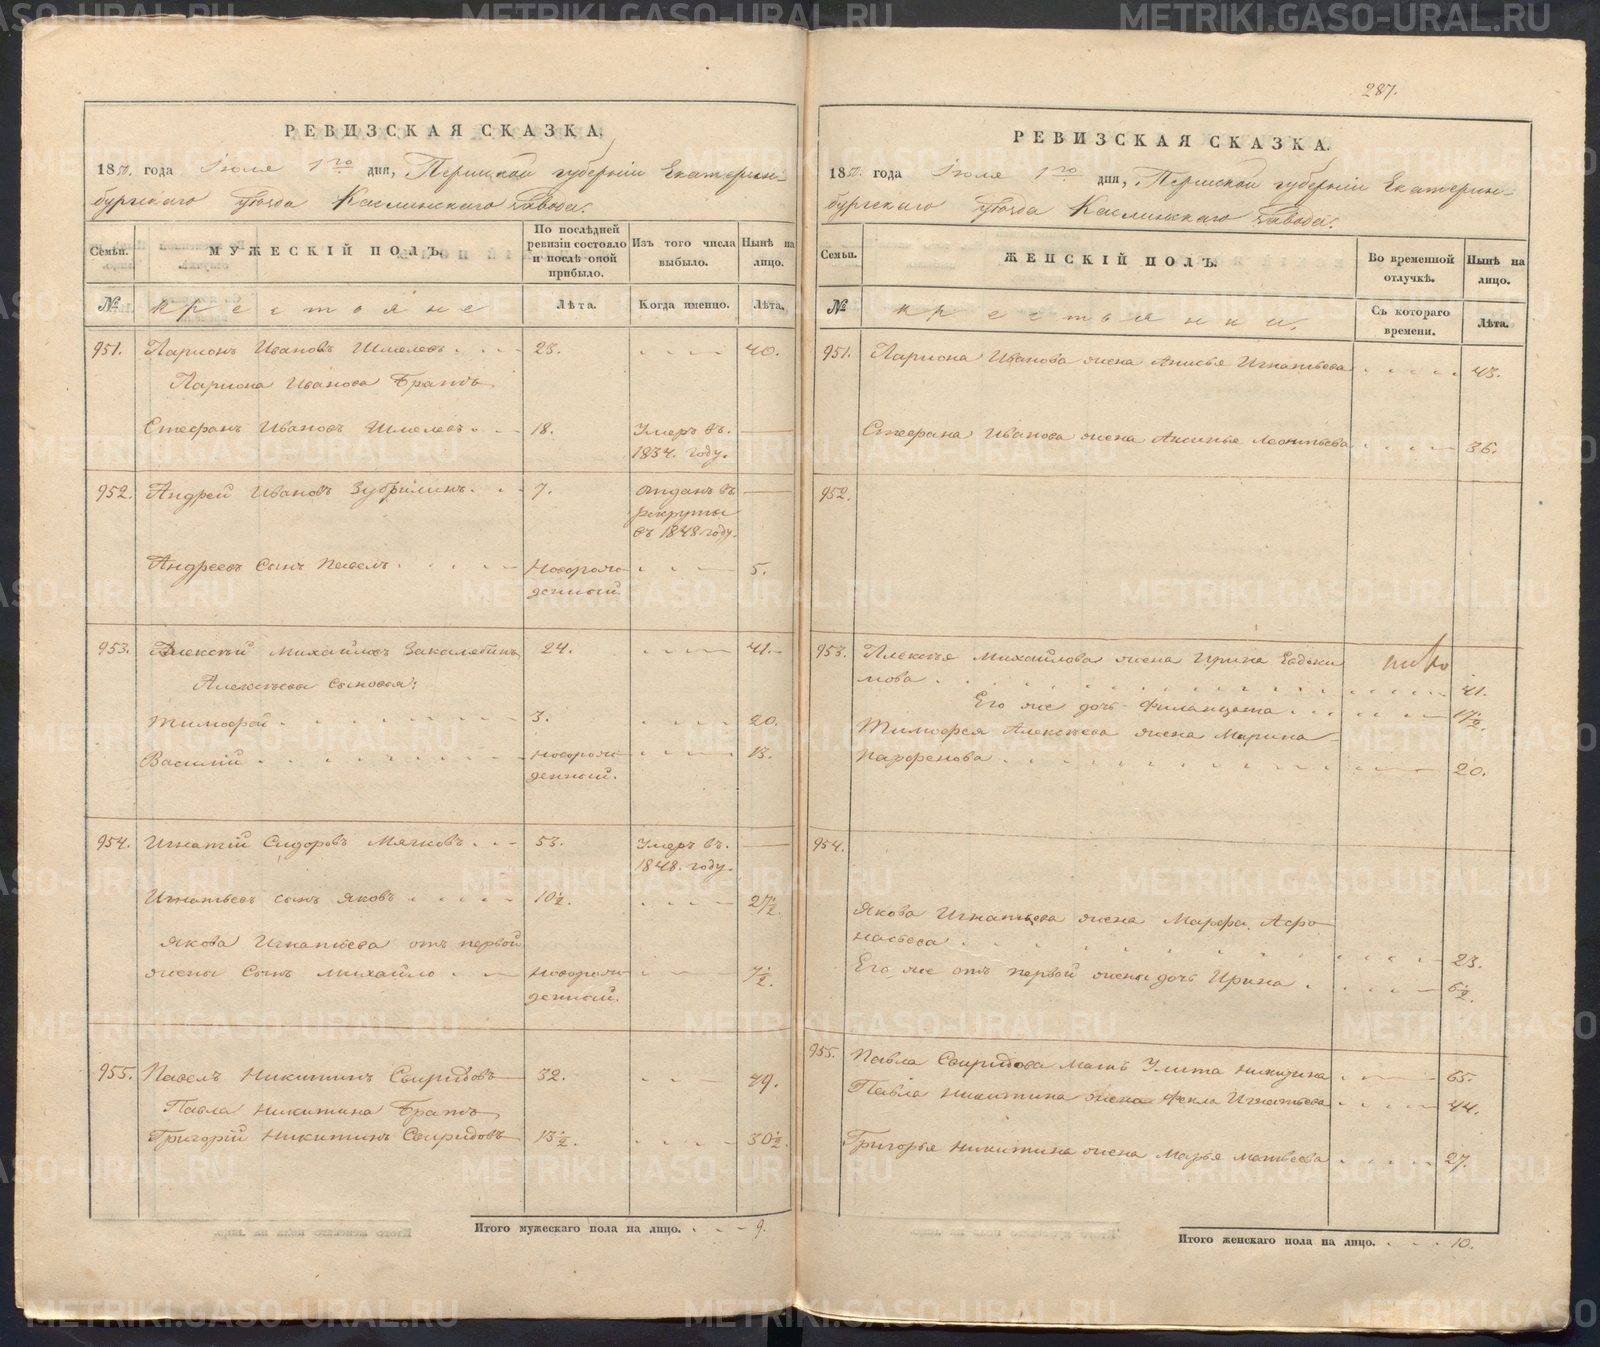 287.
РЕВИЗСКАЯ СКАЗКА.
1850. года Июля 1го дня, Пермской губернiи Екатерин-
бургскаго Уѣзда Каслинскаго Завода.
Семьи. МУЖЕСКІЙ ПОЛЪ. По послѣдней ревизіи состояло и послѣ оной прибыло. Изъ того числа выбыло. Нынѣ на лицо.
№ крестьяне Лѣта. Когда именно. Лѣта.
951. Ларионъ Ивановъ Шмелевъ 23. 40.
Лариона Иванова Братъ
Стефанъ Ивановъ Шмелевъ 18. Умеръ въ
1834. году.
952. Андрей Ивановъ Зубрилинъ 7. отданъ въ
рекруты
въ 1848 году.
Андреевъ сынъ Павелъ Новорож- 5.
денный
953. Алексѣй Михайловъ Закалябинъ 24. 41.
Алексѣевы сыновья:
Тимофей 3. 20.
Василій Новорож- 13.
денный.
954. Игнатій Сидоровъ Мягковъ 53. Умеръ въ
1848. году.
Игнатьевъ сынъ Яковъ 10½. 27½.
Якова Игнатьева отъ первой
жены Сынъ Михайло Новорож- 7½.
денный.
955. Павелъ Никитинъ Свиридовъ 32. 49.
Павла Никитина Братъ
Григорій Никитинъ Свиридовъ 13½. 30½.
Итого мужескаго пола на лицо. 9.
РЕВИЗСКАЯ СКАЗКА.
1850. года Июля 1го дня, Пермской губернiи Екатерин-
бургскаго Уѣзда Каслинскаго Завода.
Семьи. ЖЕНСКІЙ ПОЛЪ. Во временной отлучкѣ. Нынѣ на лицо.
№ крестьянки. Съ котораго времени. Лѣта.
951. Лариона Иванова жена Анисья Игнатьева 43.
Стефана Иванова жена Аксинья Леонтьева 36.
952.
953. Алексѣя Михайлова жена Ирина Евдоки-
мова 41.
Его же дочь Филанцата 17½.
Тимофея Алексѣева жена Марина
Парфенова 20.
954.
Якова Игнатьева жена Марфа Афо-
насьева 23.
Его же отъ первой жены дочь Ирина 6½.
955. Павла Свиридова мать Улита Никитина 65.
Павла Никитина жена Фекла Игнатьева 44.
Григорья Никитина жена Марья Матвеева 27.
Итого женскаго пола на лицо. 10.
METRIKI.GASO-URAL.RU